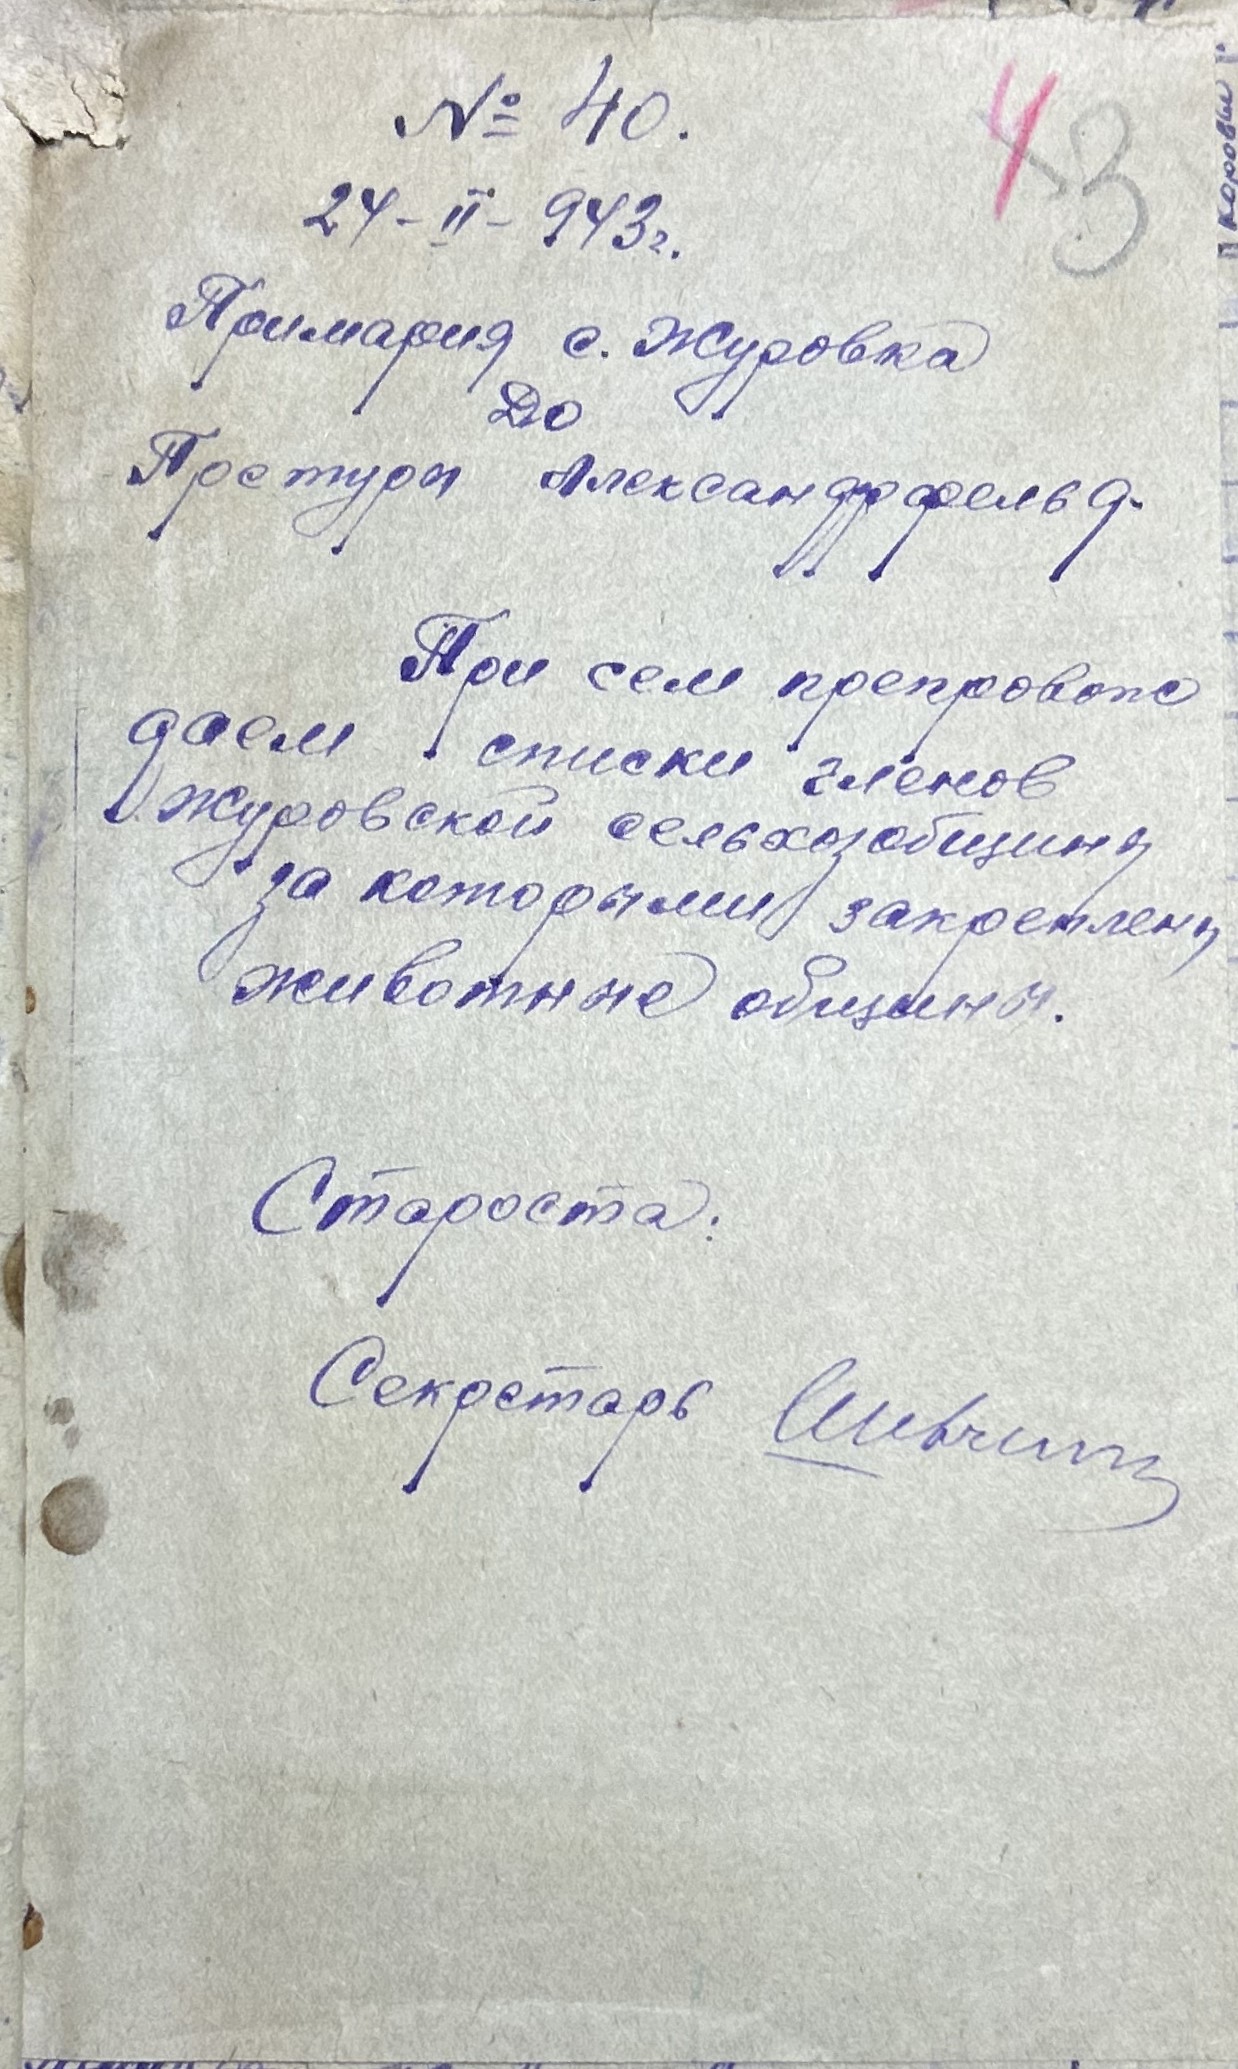 № 40.
4
3
24-II-943г.
Примария с. Журовка
До
Претуры Александрфельд.
При сем препровож
даем списки членов
Журовской сельхозобщины
за которыми закреплены
животные общины.
Староста:
Секретарь
коровы